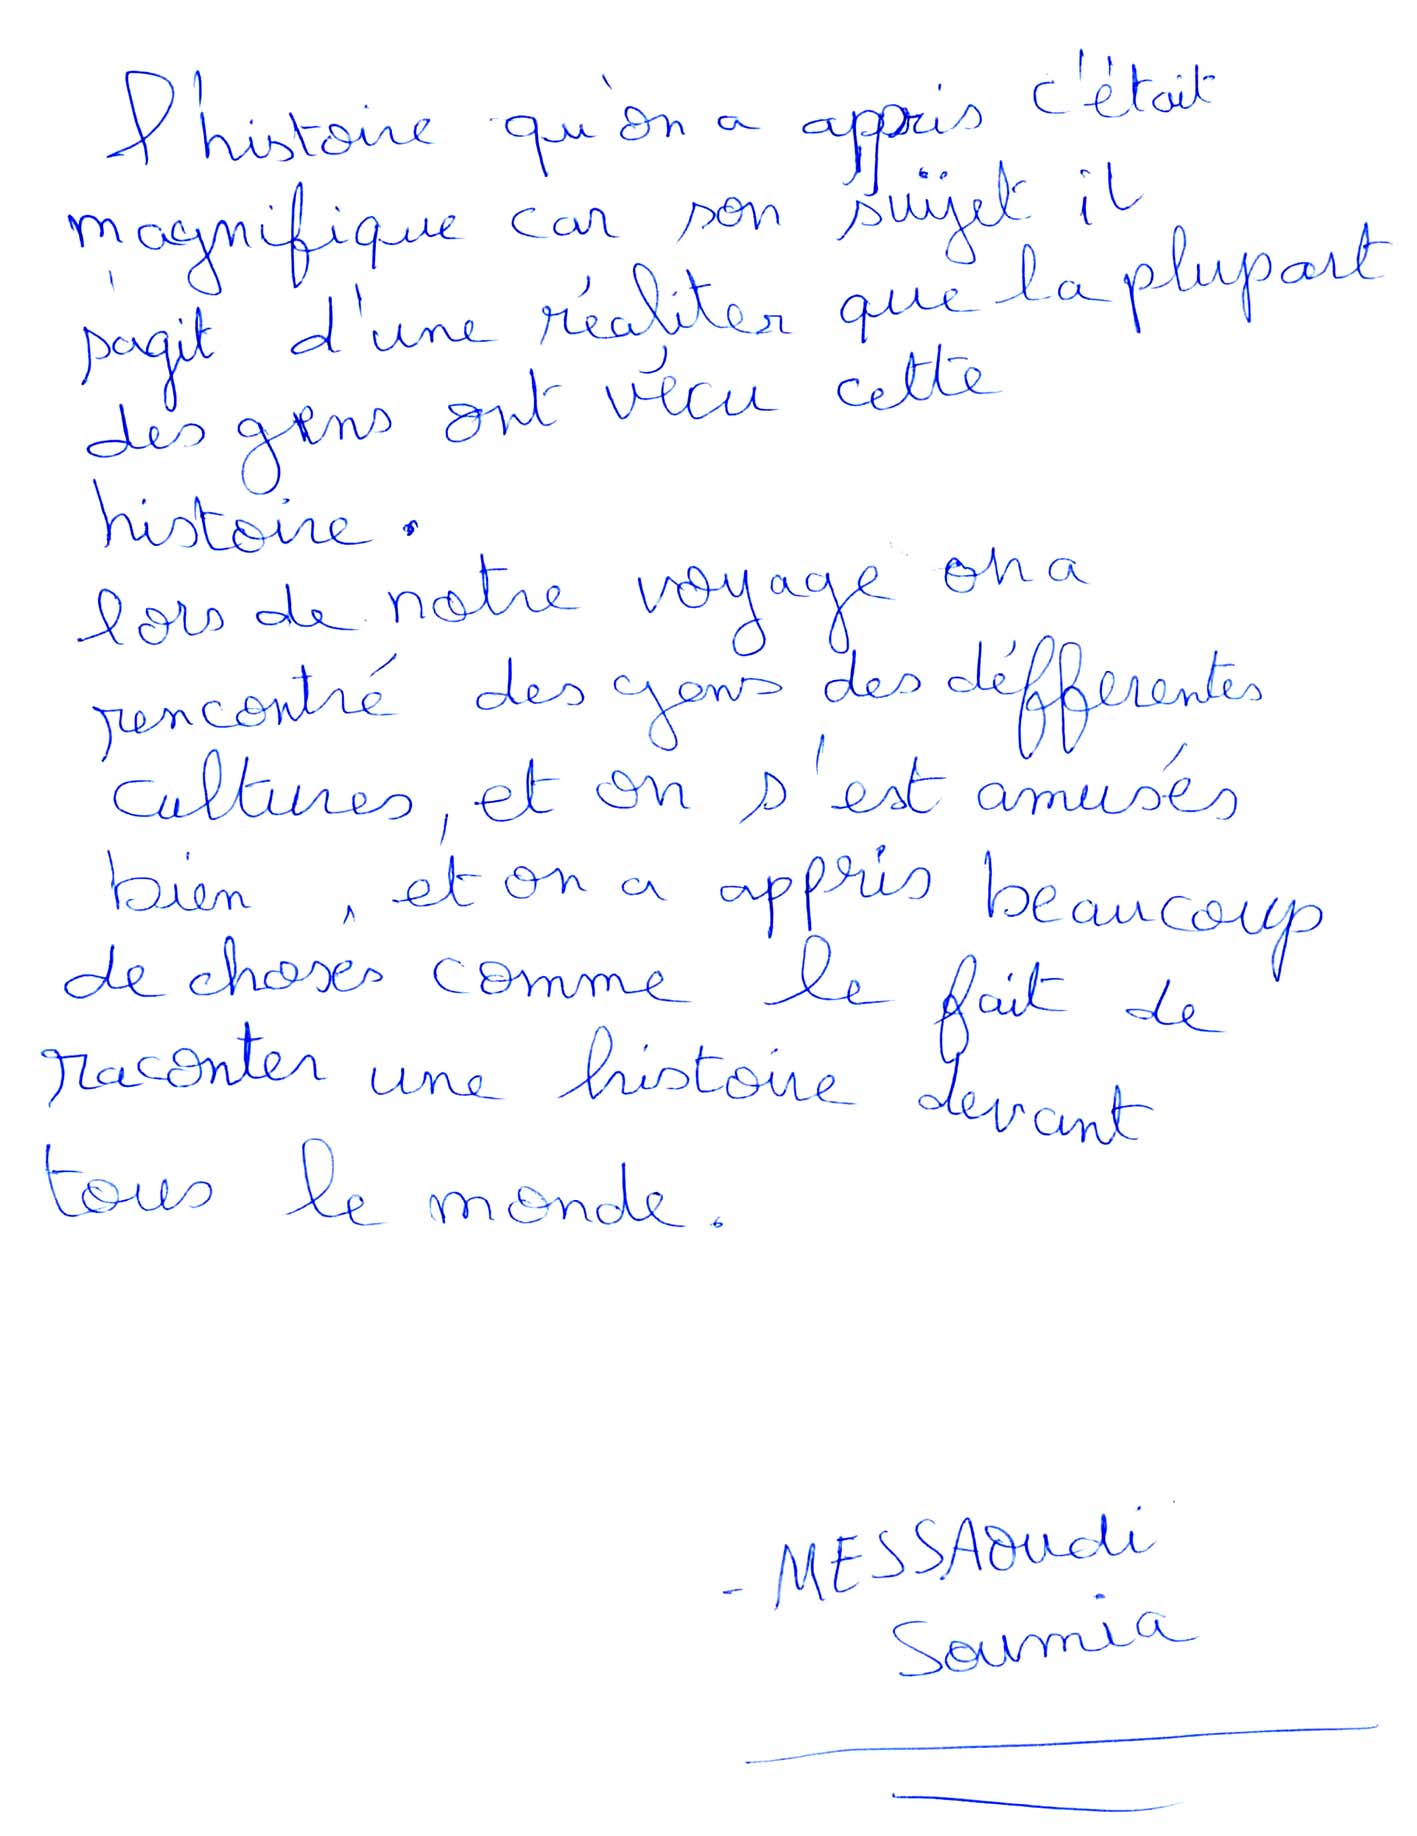 l'histoire qu'on a appris c'était
magnifique car son sujet il
s'agit d'une réaliter que la plupart
des gens ont vécu cette
histoire.
lors de notre voyage on a
rencontré des gens des défferentes
cultures, et on s'est amusés
bien, et on a appris beaucoup
de choses comme le fait de
raconter une histoire devant
tous le monde.
- MESSAOudi
Soumia